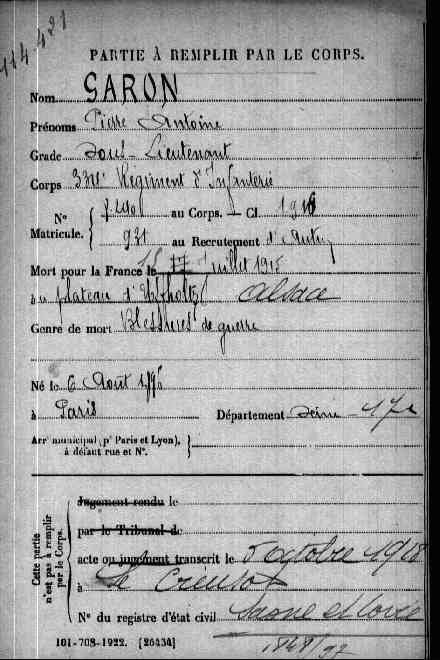 114.421
PARTIE À REMPLIR PAR LE CORPS.
Nom SARON
Prénoms Pierre Antoine
Grade Sous-Lieutenant
Corps 334e Régiment d'Infanterie
N° au Corps. — Cl. 1916
Matricule. 931 au Recrutement d'Autun
Mort pour la France le Juillet 1915
au plateau d' Alsace
Genre de mort Blessures de guerre
Né le 6 Août
à Paris Département Seine - 17e
Arrt municipal (pr Paris et Lyon),
à défaut rue et N°.
Cette partie
n'est pas à remplir
par le Corps.
Jugement rendu le
par le Tribunal de
acte ou jugement transcrit le 5 octobre 1918
à le Creusot
N° du registre d'état civil Saone et Loire
101-708-1922. [26434]